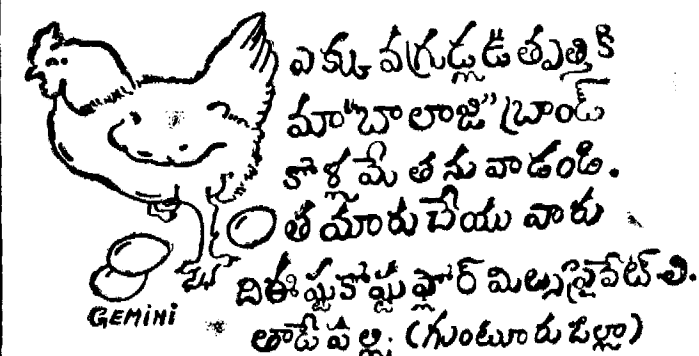 ఎక్కువగ్రుడ్లఉత్పత్తికి
మా"బాలాజి" బ్రాండ్
కోళ్లమేతను వాడండి.
తయారుచేయు వారు
దిఈష్టుకోష్టుఫ్లోర్ మిల్సుప్రైవేట్ లి.
తాడేపల్లి. (గుంటూరు జిల్లా)
GEMINI